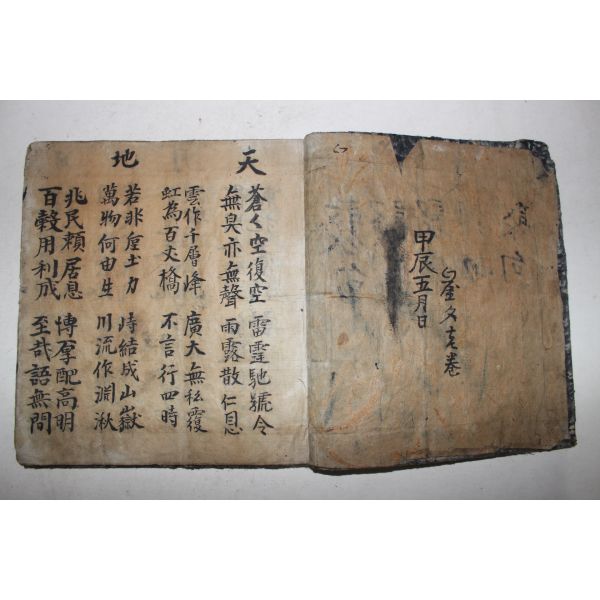 卷
甲辰五月日
天
蒼々空復空 雷霆馳號令
無臭亦無聲 雨露散仁恩
雲作千層峰 廣大無私覆
虹為百丈橋 不言行四時
地
若非厚土力 峙結成山嶽
萬物何由生 川流作淵湫
兆民賴居息 博厚配高明
百穀用利成 至哉語無間